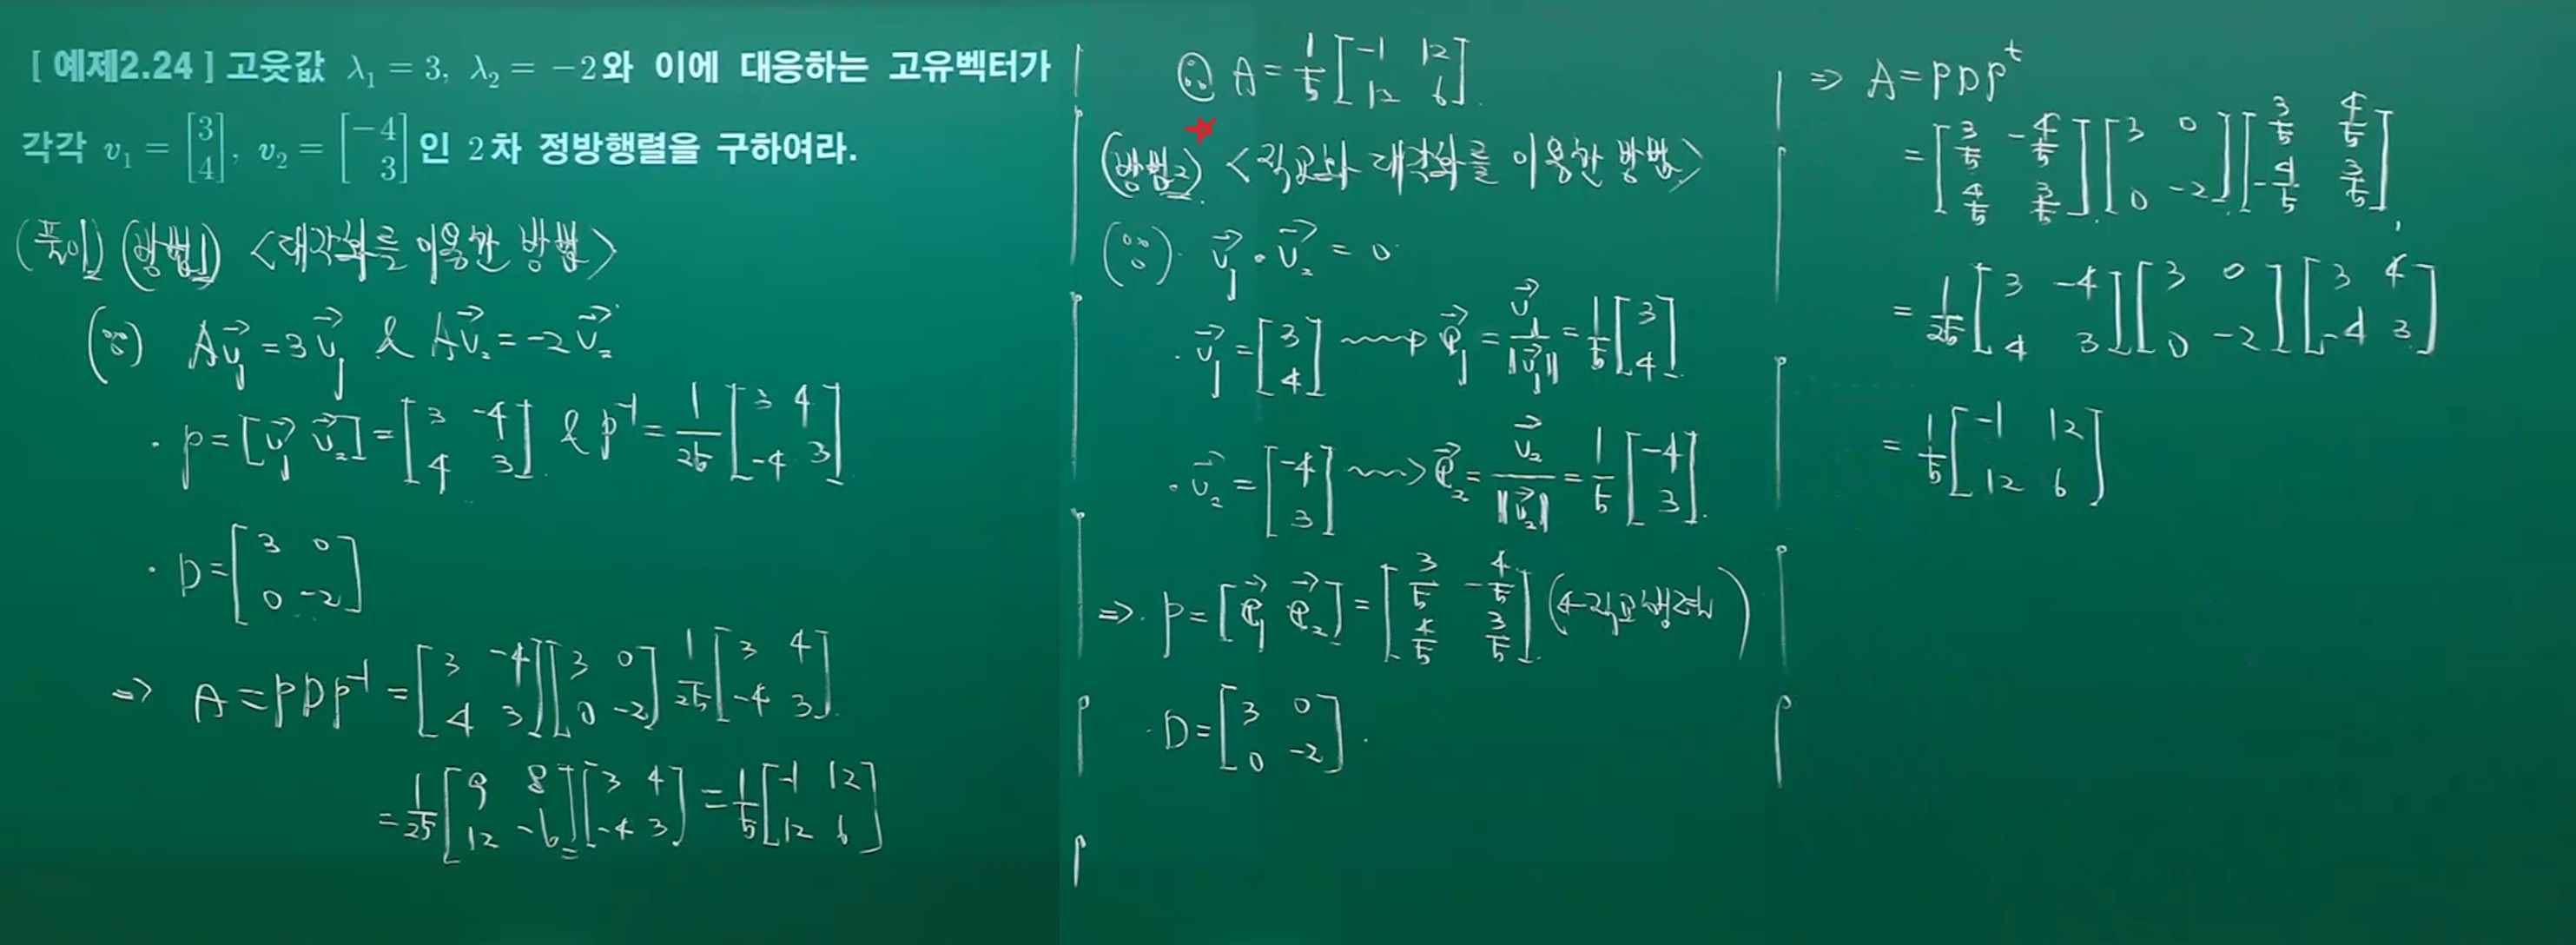 [ 예제2.24 ] 고윳값 λ₁ = 3, λ₂ = −2와 이에 대응하는 고유벡터가
각각 v₁ = [3; 4], v₂ = [−4; 3]인 2차 정방행렬을 구하여라.
(풀이) (방법1) <대각화를 이용한 방법>
(∵) Av₁ = 3v₁ & Av₂ = -2v₂
· P = [v₁ v₂] = [3 -4; 4 3] & P⁻¹ = 1/25 [3 4; -4 3]
· D = [3 0; 0 -2]
⇒ A = PDP⁻¹ = [3 -4; 4 3][3 0; 0 -2] 1/25 [3 4; -4 3]
= 1/25 [9 8; 12 -6][3 4; -4 3] = 1/5 [-1 12; 12 6]
∴ A = 1/5 [-1 12; 12 6]
(방법2) <직교화 대각화를 이용한 방법>
(∵) v₁ · v₂ = 0
· v₁ = [3; 4] ⇝ e₁ = v₁/‖v₁‖ = 1/5 [3; 4]
· v₂ = [-4; 3] ⇝ e₂ = v₂/‖v₂‖ = 1/5 [-4; 3]
⇒ · P = [e₁ e₂] = [3/5 -4/5; 4/5 3/5] (← 직교행렬)
· D = [3 0; 0 -2]
⇒ A = PDPᵗ
= [3/5 -4/5; 4/5 3/5][3 0; 0 -2][3/5 4/5; -4/5 3/5]
= 1/25 [3 -4; 4 3][3 0; 0 -2][3 4; -4 3]
= 1/5 [-1 12; 12 6]